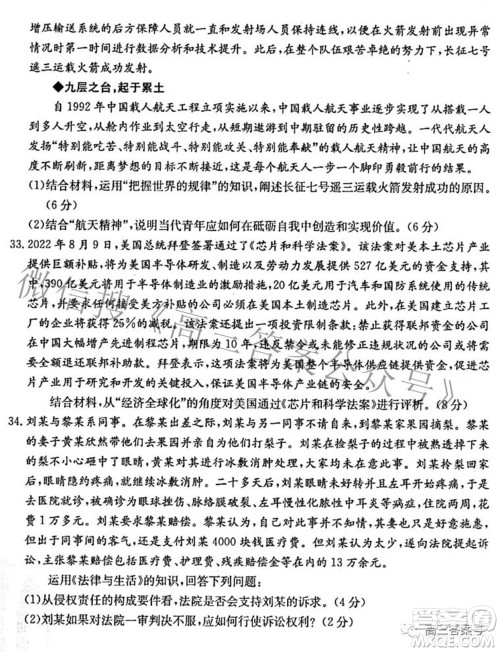 增压输送系统的后方保障人员就一直和发射场人员保持连线，以便在火箭发射前出现异常
情况时第一时间进行数据分析和技术支持。此后，在整个队伍艰苦卓绝的努力下，长征七号
遥三运载火箭成功发射。
◆九层之台，起于累土
自1992年中国载人航天工程立项实施以来，中国载人航天事业逐步实现了从搭载一人
到多人升空，从舱内作业到太空行走，从短期遨游到中期驻留的历史性跨越。一代代航天人
用“特别能吃苦、特别能战斗、特别能攻关、特别能奉献”的载人航天精神，让中国航天的高
度不断刷新，距离梦想的目标不断接近，每个航天人一步一个脚印勇毅前行！
(1)结合材料，运用“把握世界的规律”的知识，阐述长征七号遥三运载火箭发射成功的原因。
(6分)
(2)结合“航天精神”，说明当代青年应如何在砥砺自我中创造和实现价值。(6分)
33. 2022年8月9日，美国总统拜登签署通过了《芯片和科学法案》。该法案对美本土芯片产业
提供巨额补贴，将为美国半导体研发、制造以及劳动力发展提供527亿美元的资金支持，其
中，390亿美元将用于半导体制造业的激励措施，20亿美元用于汽车和国防系统使用的传
统芯片，并要求任何接
的公司必须在美国本土制造芯片。此外，在美国建立芯片工
厂的企业将获得25%的减
该法案还要求禁止接受联邦奖励资金的企业，
在中国大幅增产先进制程芯片，期限为10年，违反禁令或未能修正违规状况的公司，或将需
要全额退还联邦补助款。拜登表示，
将为美国整个半导体供应链提供资金，促进芯片
产业用于研究和开发的关键投入，保证美国半导体产业
结合材料，从“经济全球化”的角度对美国通过《芯片和科学法案》进行评析。(8分)
34. 刘某与黎某系同事。在黎某出差之际，刘某与另一同事一同去帮忙采摘黎某家的梨。黎某
的妻子黄某欣然带他们一同去自家梨园并让他们自己动手打梨子。刘某在打梨时被掉下来
的梨不小心砸中了眼睛，黄某遂对刘某的眼睛进行冰敷消肿处理。刘某拎梨回家后，家里人
也觉得眼睛红肿疼痛，就继续冰敷消肿，大家均未在意。二十多天后，刘某感觉眼睛疼痛，于
是去医院就诊，被确诊为眼球挫伤、脉络膜破裂、左耳慢性化脓性中耳炎等病症，住院两周，花
费1万多元。刘某要求黎某赔偿，但黎某仅支付刘某4000块钱医疗费。刘某不服，起诉至法
院，主张黎某赔偿包括医疗费、护理费、残疾赔偿金等在内的13万余元。
运用《法律与生活》的知识，回答下列问题：
(1)从侵权责任的构成要件看，法院是否会支持刘某的诉求。(4分)
(2)刘某如果对法院一审判决不服，应如何行使诉讼权利？(2分)
微信搜《高三答案公众号》
高三答案号